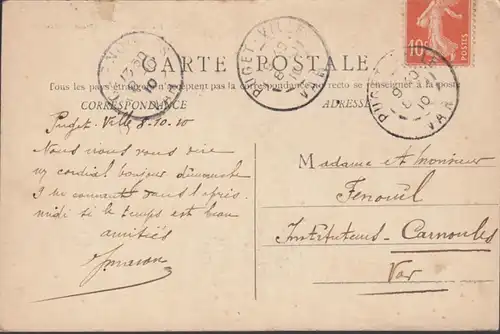 CARTE POSTALE
Tous les pays étrangers n'acceptent pas la correspondance au recto se renseigner à la poste
CORRESPONDANCE
ADRESSE
10c
POSTES
PUGET-VILLE
VAR
PUGET-VILLE
VAR
Puget-Ville 8.10.10
Nous vous dire
cordial bonjour dimanche
dans l'après
midi si le temps est beau
amitiés
Madame et Monsieur
Fenouil
Instituteurs - Carnoules
Var